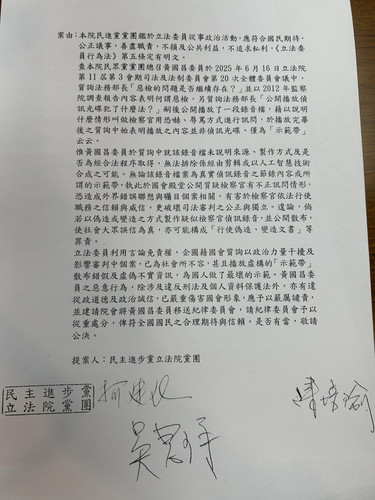 案由：本院民進黨黨團鑑於立法委員從事政治活動，應符合國民期待，
公正議事，善盡職責，不損及公共利益，不追求私利，《立法委
員行為法》第五條定有明文。
查本院民眾黨黨團總召黃國昌委員於 2025 年 6 月 16 日立法院
第 11 屆第 3 會期司法及法制委員會第 20 次全體委員會議中，
質詢法務部長「惡檢的問題是否繼續存在？」並以 2012 年監察
院調查報告內容表明何謂惡檢，另質詢法務部長「公開播放偵
訊光碟犯了什麼法？」嗣後公開播放了一段錄音檔，藉以說明
什麼情形叫做檢察官用恐嚇、辱罵方式進行訊問，於播放完畢
後之質詢中始表明播放之內容並非偵訊光碟，僅為「示範帶」
云云。
惟黃國昌委員於質詢中就該錄音檔未說明來源、製作方式及是
否為經合法程序取得，無法排除係經由剪輯或以人工智慧技術
合成之可能。無論該錄音檔案為真實偵訊錄音之節錄內容或所
謂的示範帶，執此於國會殿堂公開質疑檢察官有不正訊問情形，
恐造成外界錯誤聯想與職目個案相關，有害於檢察官依法行使
職務之信賴與威信，更破壞司法審判之公正與獨立。遑論，倘
若以偽造或變造之方式製作疑似檢察官偵訊錄音，並公開散布，
使社會大眾誤信為真，亦可能構成「行使偽造、變造文書」等
罪責。
立法委員利用言論免責權，企圖藉國會質詢以政治力量干擾及
影響審判中個案，已為社會所不容，甚且播放虛構的「示範帶」
散布錯假及虛偽不實資訊，為國人做了最壞的示範。黃國昌委
員之惡意行為，除涉及違反刑法及個人資料保護法外，亦有違
從政道德及政治誠信，已嚴重傷害國會形象，應予以嚴厲譴責，
並建請院會將黃國昌委員移送紀律委員會，請紀律委員會予以
從重處分，俾符全國國民之合理期待與信賴。是否有當，敬請
公決。
提案人：民主進步黨立法院黨團
民主進步黨
立法院黨團